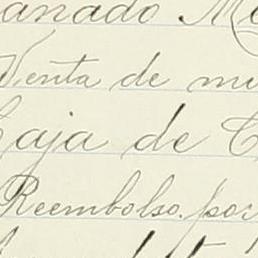 anado M
Venta de mu
Caja de C
Reembolso. por